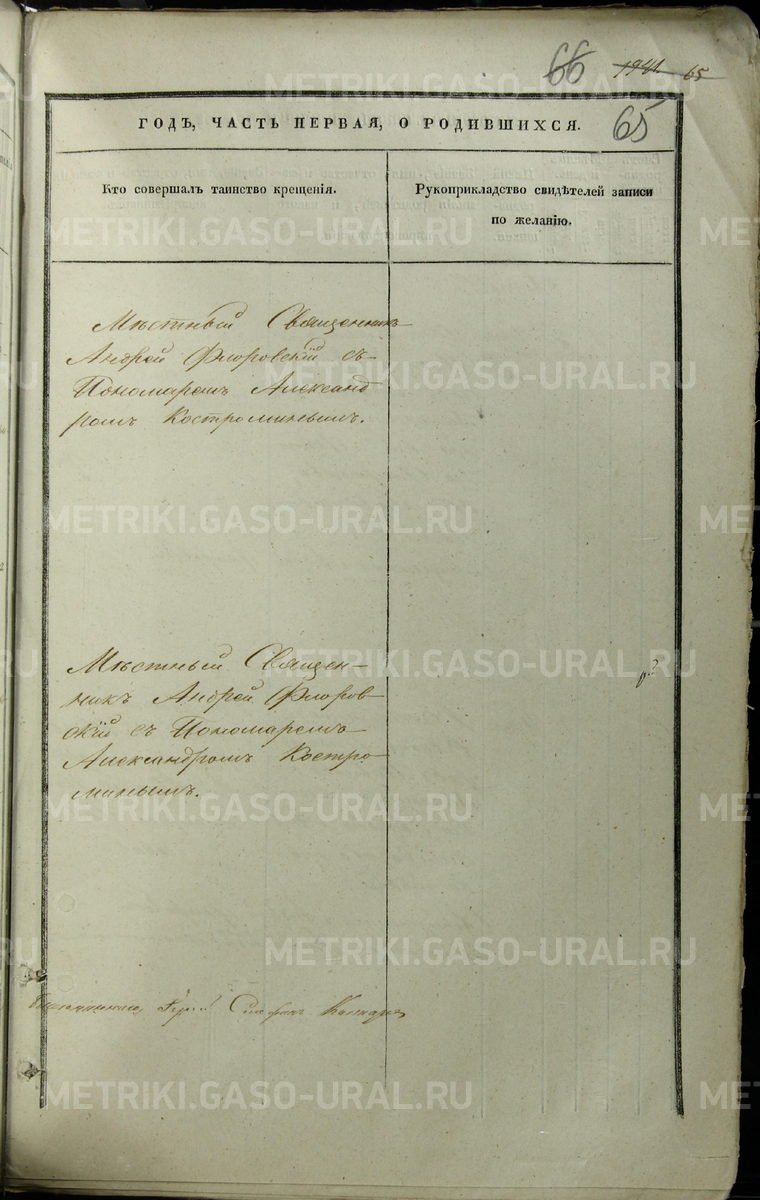 66 1941. 65
ГОДЪ, ЧАСТЬ ПЕРВАЯ, О РОДИВШИХСЯ.
65
Кто совершалъ таинство крещенія.
Рукоприкладство свидѣтелей записи
по желанію.
Мѣстный Священникъ
Андрей Флоровскій съ
Пономаремъ Александ
ромъ Костроминымъ.
Мѣстный Священ-
никъ Андрей Флоров
скій съ Пономаремъ
Александромъ Костро
минымъ.
METRIKI.GASO-URAL.RU